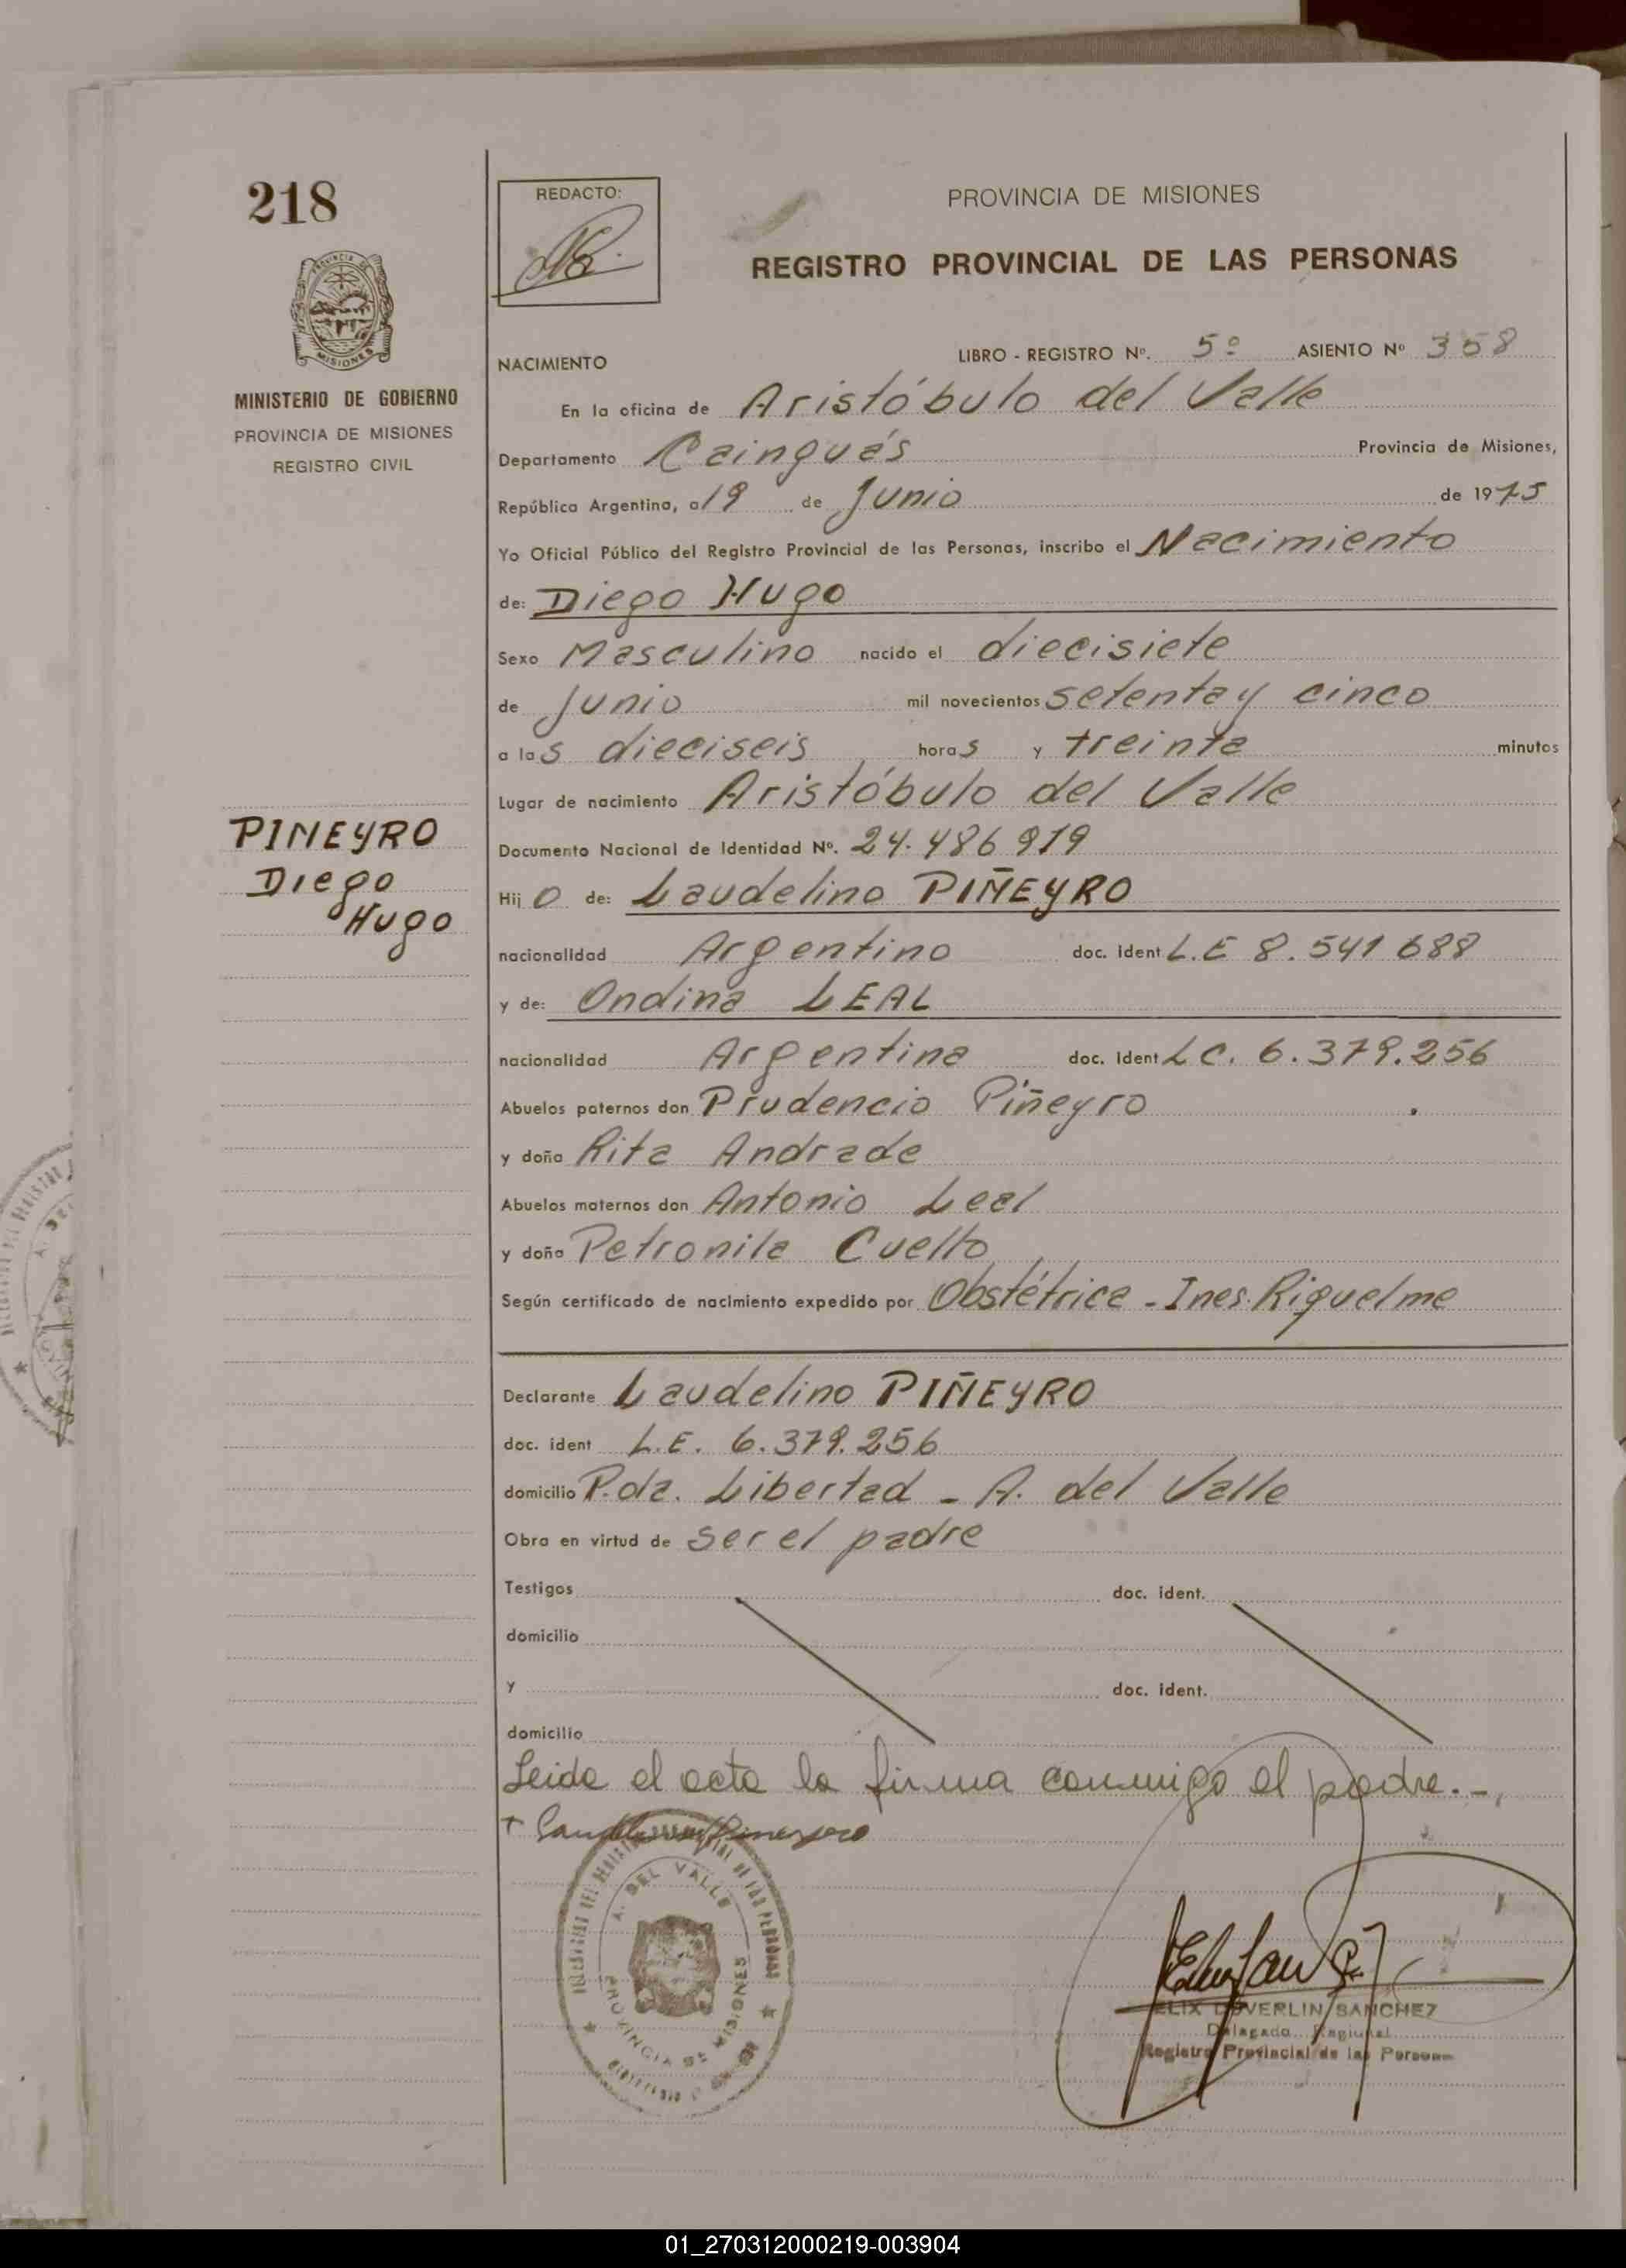 218
REDACTO:
PROVINCIA DE MISIONES
REGISTRO PROVINCIAL DE LAS PERSONAS
PROVINCIA DE
MISIONES
MINISTERIO DE GOBIERNO
PROVINCIA DE MISIONES
REGISTRO CIVIL
NACIMIENTO
LIBRO - REGISTRO Nº. 5º ASIENTO Nº 358
En la oficina de Aristóbulo del Valle
Departamento Cainguás Provincia de Misiones,
República Argentina, a 19 de Junio de 1975
Yo Oficial Público del Registro Provincial de las Personas, inscribo el Nacimiento
de: Diego Hugo
Sexo Masculino nacido el diecisiete
de Junio mil novecientos setenta y cinco
a las dieciseis horas y treinta minutos
Lugar de nacimiento Aristóbulo del Valle
PINEYRO
Diego
Hugo
Documento Nacional de Identidad Nº. 24.486 919
Hijo de: Laudelino PIÑEYRO
nacionalidad Argentino doc. ident L.E 8.541 688
y de: Ondina LEAL
nacionalidad Argentina doc. ident L C. 6.379.256
Abuelos paternos don Prudencio Piñeyro
y doña Rita Andrade
Abuelos maternos don Antonio Leal
y doña Petronila Cuello
Según certificado de nacimiento expedido por Obstétrica - Ines Riquelme
Declarante Laudelino PIÑEYRO
doc. ident L.E. 6.379.256
domicilio P.da. Libertad - A. del Valle
Obra en virtud de ser el padre
Testigos doc. ident.
domicilio
y doc. ident.
domicilio
Leida el acta la firma conmigo el padre.-
A. DEL VALLE
PROVINCIA DE MISIONES
SANCHEZ
Delegado Regional
Registro Provincial de las Personas
01_270312000219-003904